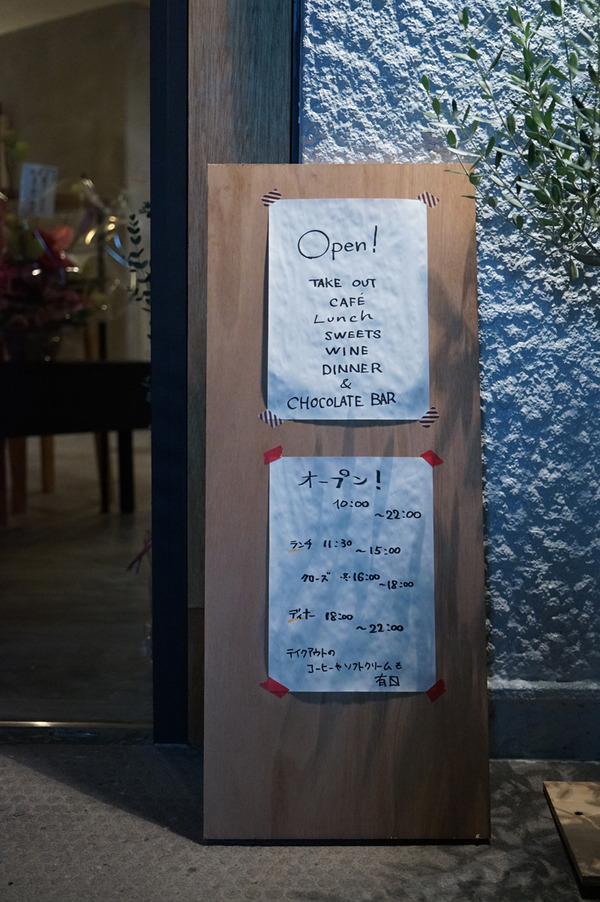 Open!
TAKE OUT
CAFÉ
Lunch
SWEETS
WINE
DINNER
&
CHOCOLATE BAR
オープン!
10:00
~22:00
ランチ 11:30
~15:00
クローズ 16:00
~18:00
ディナー 18:00
~22:00
テイクアウトの
コーヒーやソフトクリームも